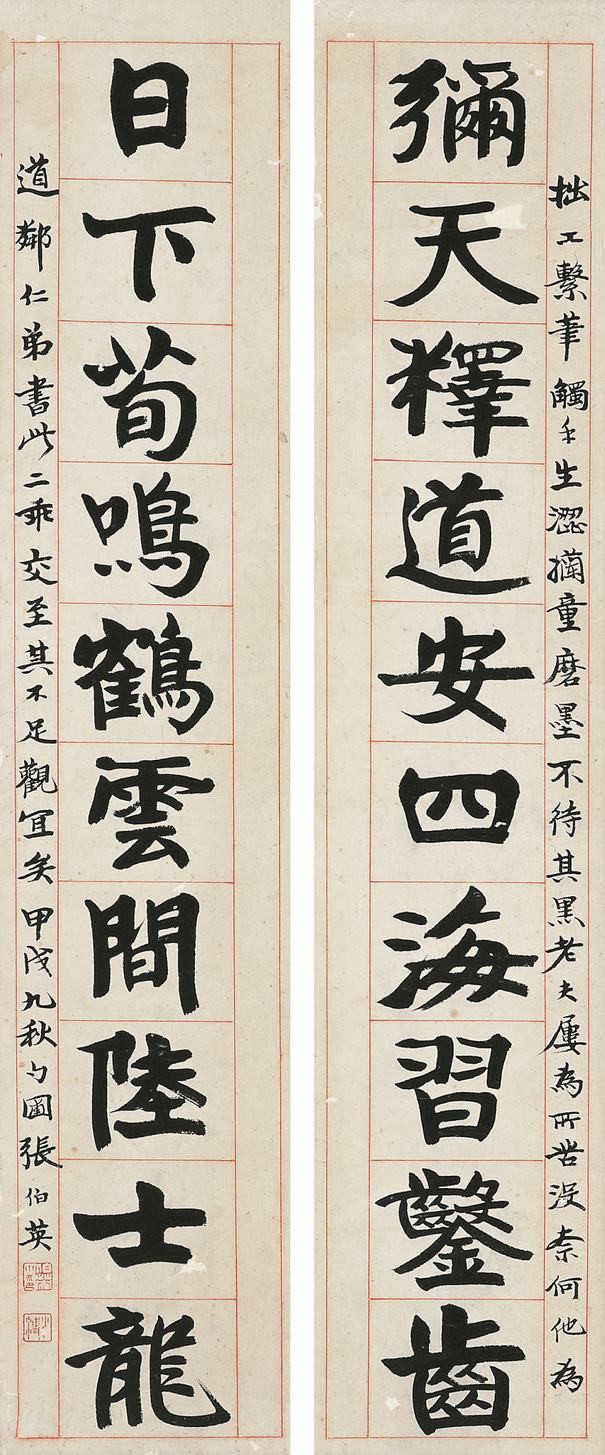 彌天釋道安四海習鑿齒
拙工繫筆觸手生澀擕童磨墨不待其黑老夫屢為所苦沒奈何他為
日下荀鳴鶴雲間陸士龍
道鄰仁弟書此二乖交至其不足觀宜矣甲戌九秋勺圃張伯英